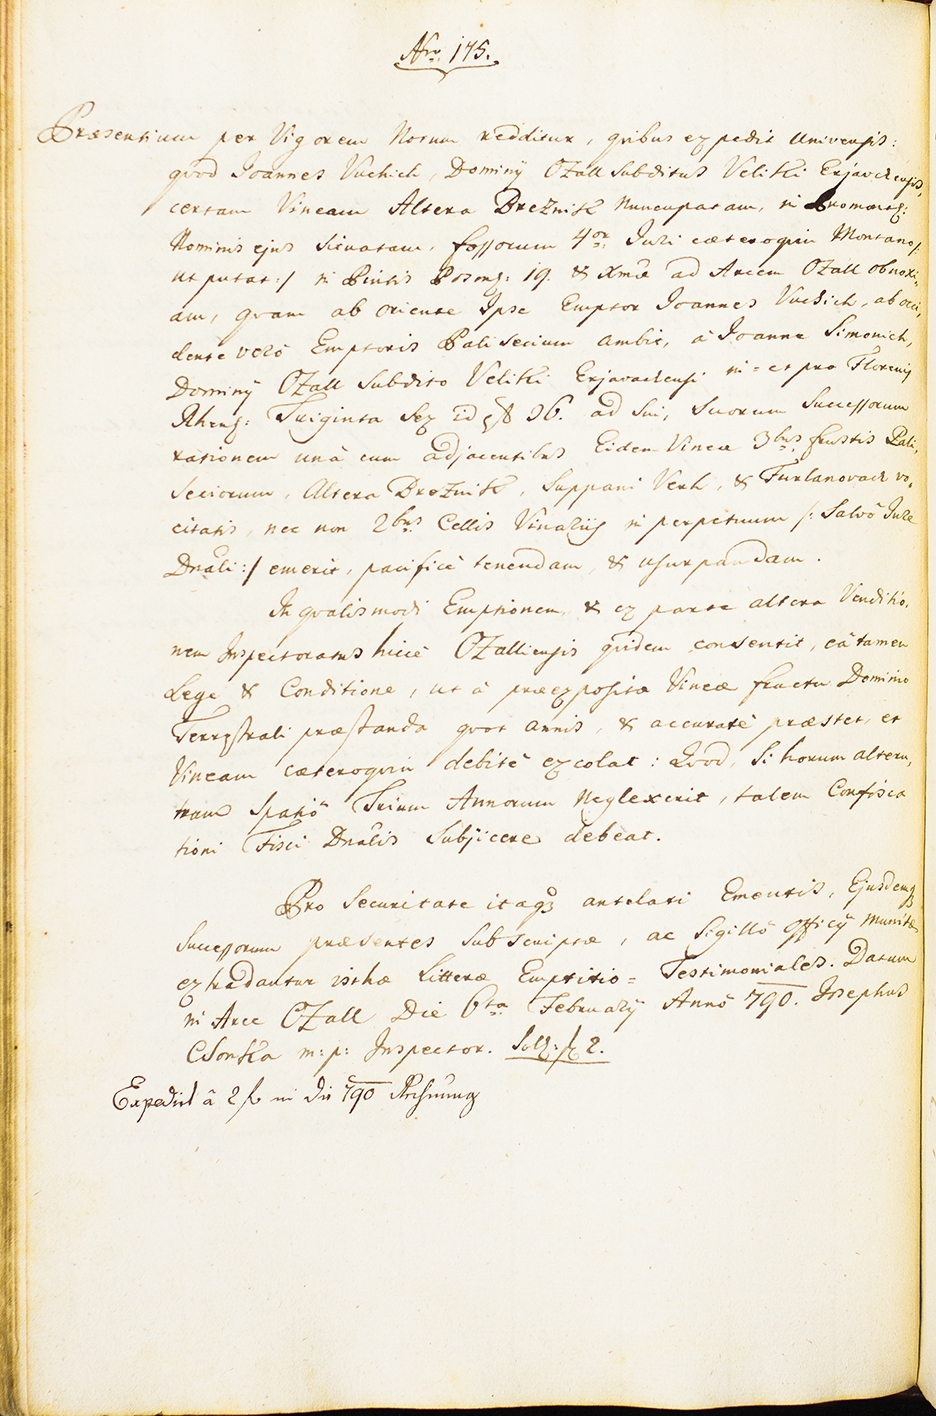 Nro. 175.
Præsentium per Vigorem Notum redditur, qvibus expedit Universis:
qvod Joannes Vuchich, Dominÿ OZall Subditus Velitki Erjavchensis,
certam Vineam Altera BreZnik Nuncupatam, in Promont:
Nominis ejus Situatam, fossorum 4or Juri cæteroqvin Montano /:
ut putat :/ in Pintis Posong: 19. & Xmæ ad Arcem OZall obnoxi,
am, qvam ab oriente Ipse Emptor Joannes Vuchich, ab occi,
dente verò Emptoris Palisecium ambit, à Joanne Simonich,
Dominÿ OZall Subdito Velitki Erjavachensi in = et pro Florenis
Rheng: Triginta Sex id est 36. ad Sui, Suorum Successorum
rationem unà cum adjacentibus Eidem Vineæ 3bus frustis Pali,
seciorum, Altera BreZnik, Suppani Verh, & Furlanovach vo,
citatis, nec non 2bus Cellis Vinarÿs in perpetuum /: Salvô Jure
Dnali :/ emerit, pacificè tenendam, & usurpandam.
In qvalismodi Emptionem, & ex parte altera Venditio,
nem Inspectoratus hicce OZalliensis qvidem consentit, eâ tamen
Lege & Conditione, ut à præexpositæ Vineæ fructu Dominio
Terrestrali præstanda qvot annis, & accuratè præstet, et
Vineam cæteroqvin debitè excolat: Qvod, Si horum alteru,
trum Spatiô Trium Annorum Neglexerit, talem Confisca
tioni Fisci Dnalis Subjicere debeat.
Pro Securitate itaq3 antelati Ementis, Ejusdemq3
Successorum præsentes Subscriptæ, ac Sigillô Officÿ Munitæ
extradantur isthæ Litteræ Emptitio = Testimoniales. Datum
in Arce OZall Die 6ta Februarÿ Annô 790. Josephus
CSonka m: p: Inspector. Solt: f 2.
Expedict à 2 f in die 790 Rechnung